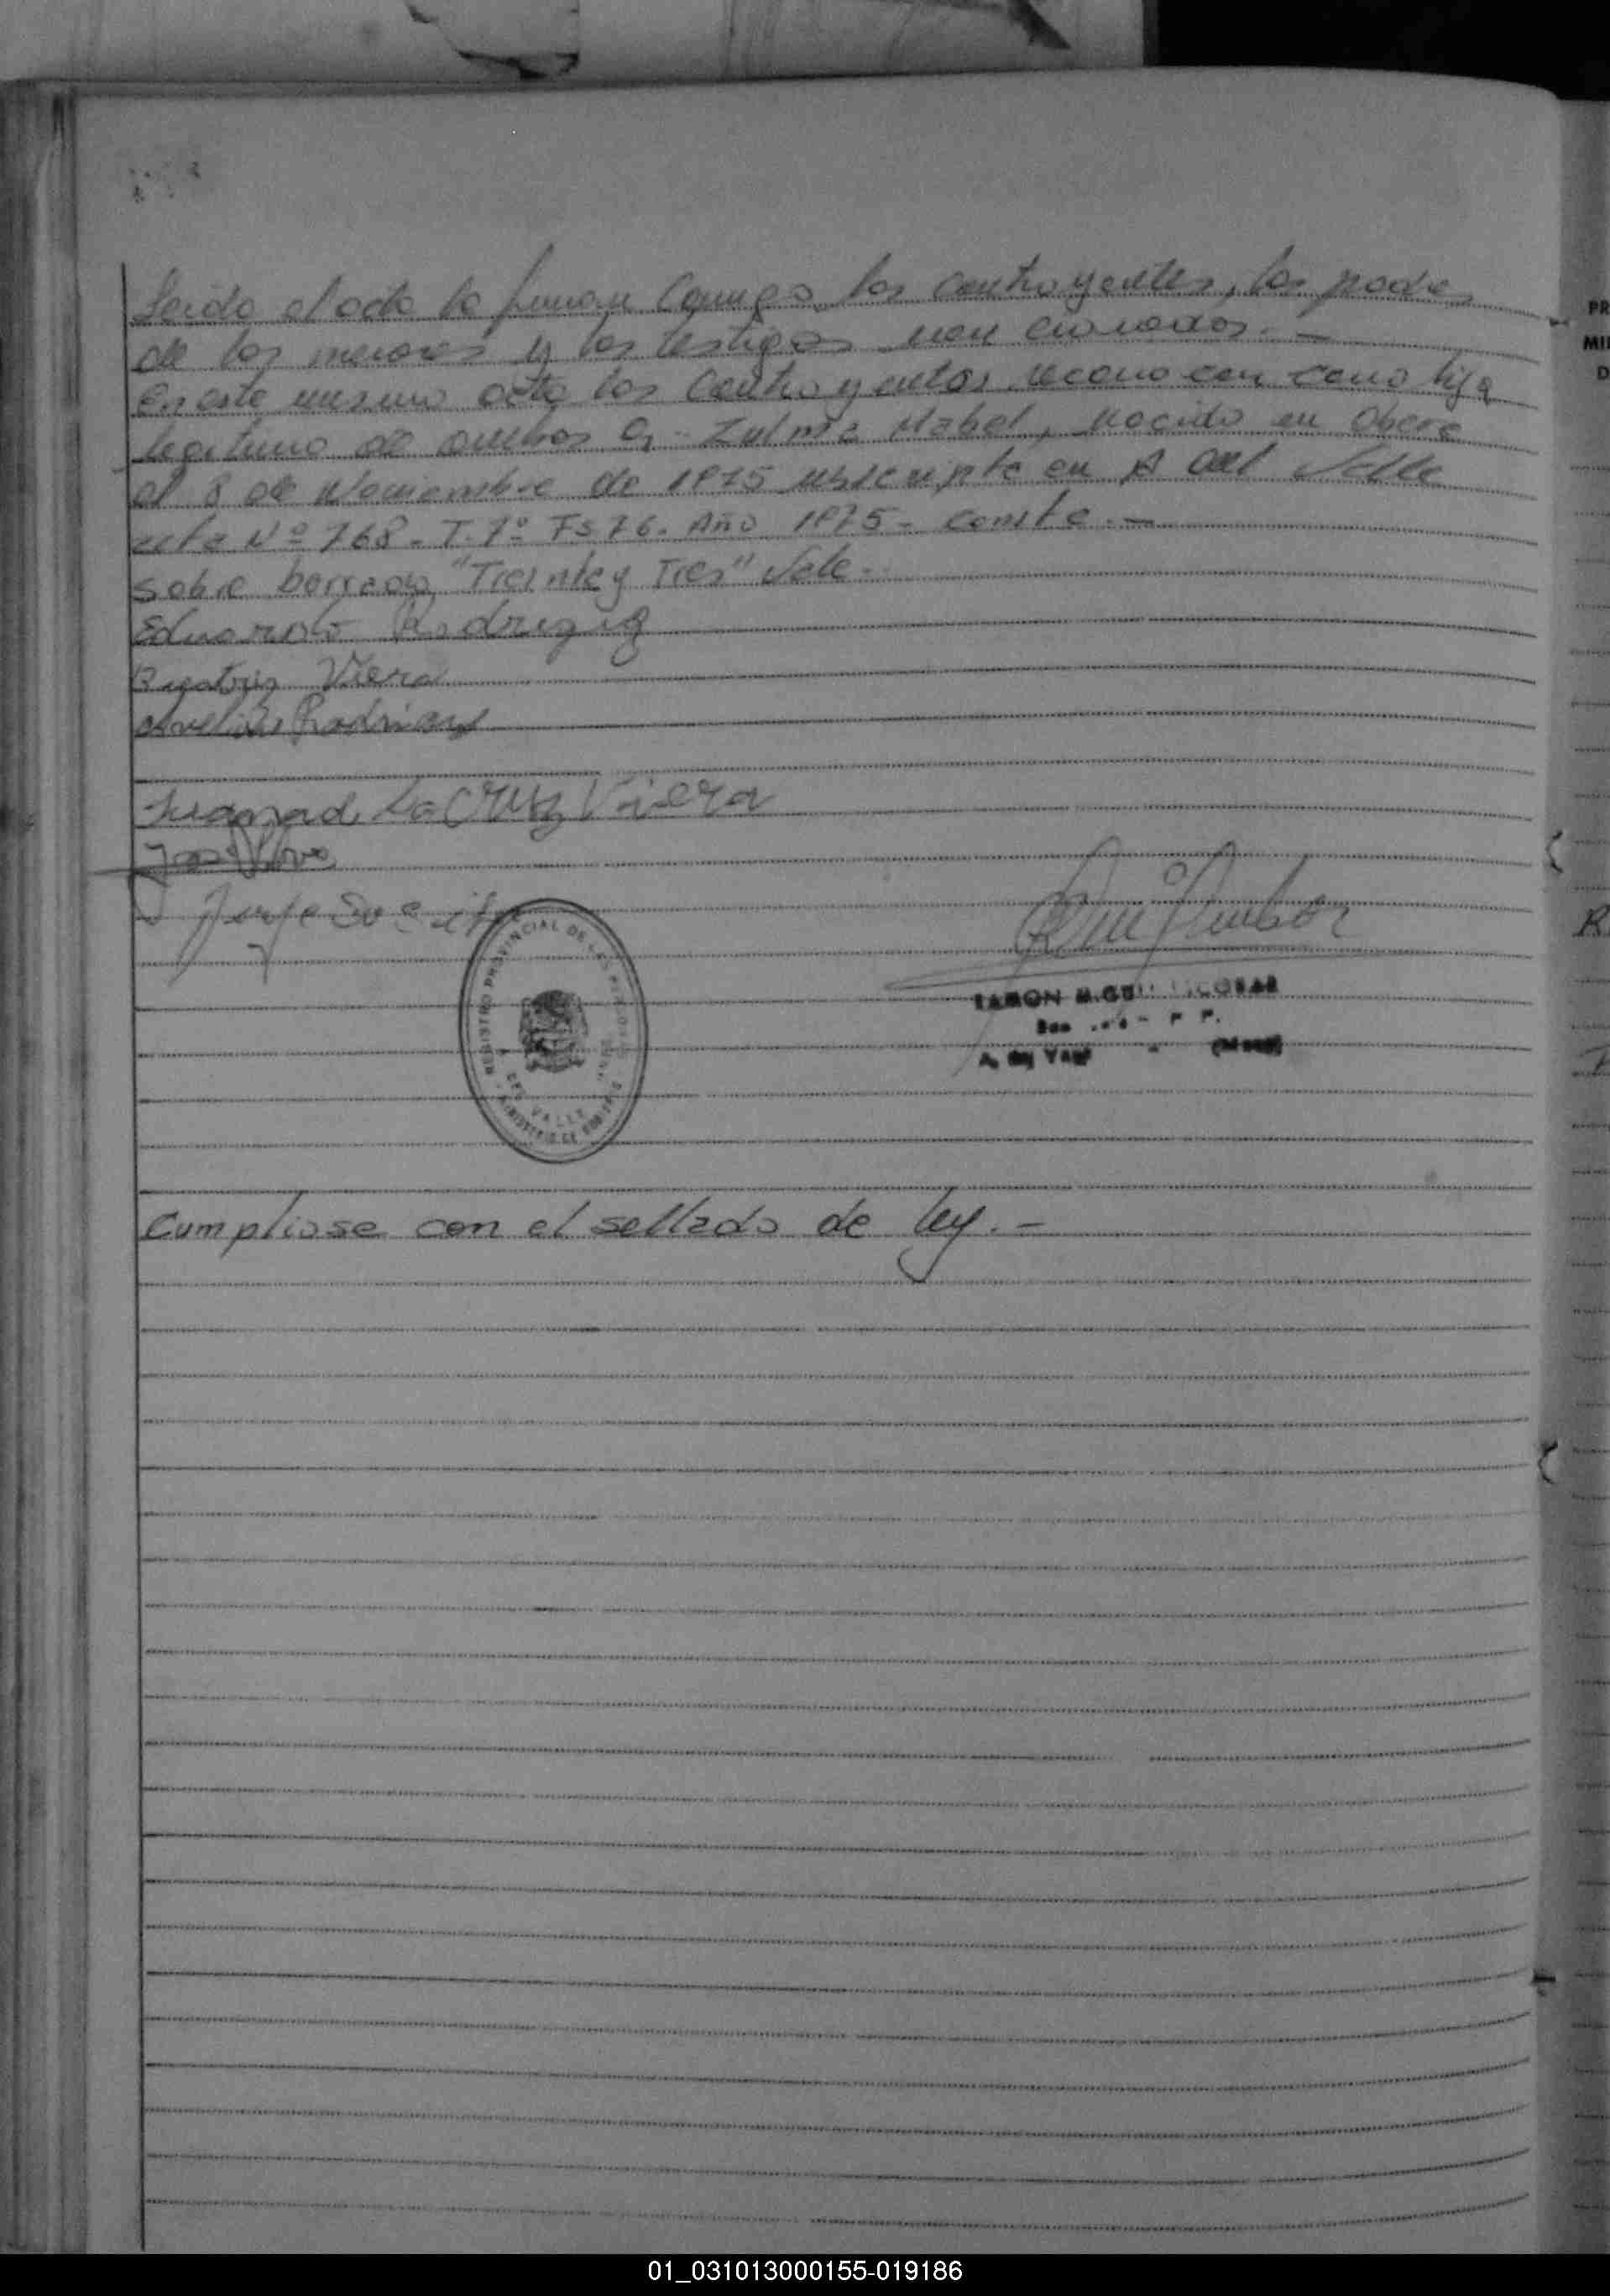 Leido el acta la firman conmigo los contrayentes, los padres
de los menores y los testigos mencionados. —
En este mismo acto los contrayentes reconocen como hija
legitima de ambos a Zulma Mabel, nacida en Obera
el 8 de Noviembre de 1975 inscripta en A del Valle
acta Nº 768 - T. 1º Fs 76. Año 1975 - conste. —
Sobre borrado "Treinta y Tres" Vale.
Eduardo Rodriguez
Beatris Viera
Rodriguez
Juana de La Cruz Viera
Jorge
REGISTRO PROVINCIAL DE LAS PERSONAS
DEL VALLE
MINISTERIO DE GOBIERNO
RAMON MIGUEL ESCOBAR
A. del Valle
Cumpliose con el sellado de ley. —
PR
MI
D
R
01_031013000155-019186